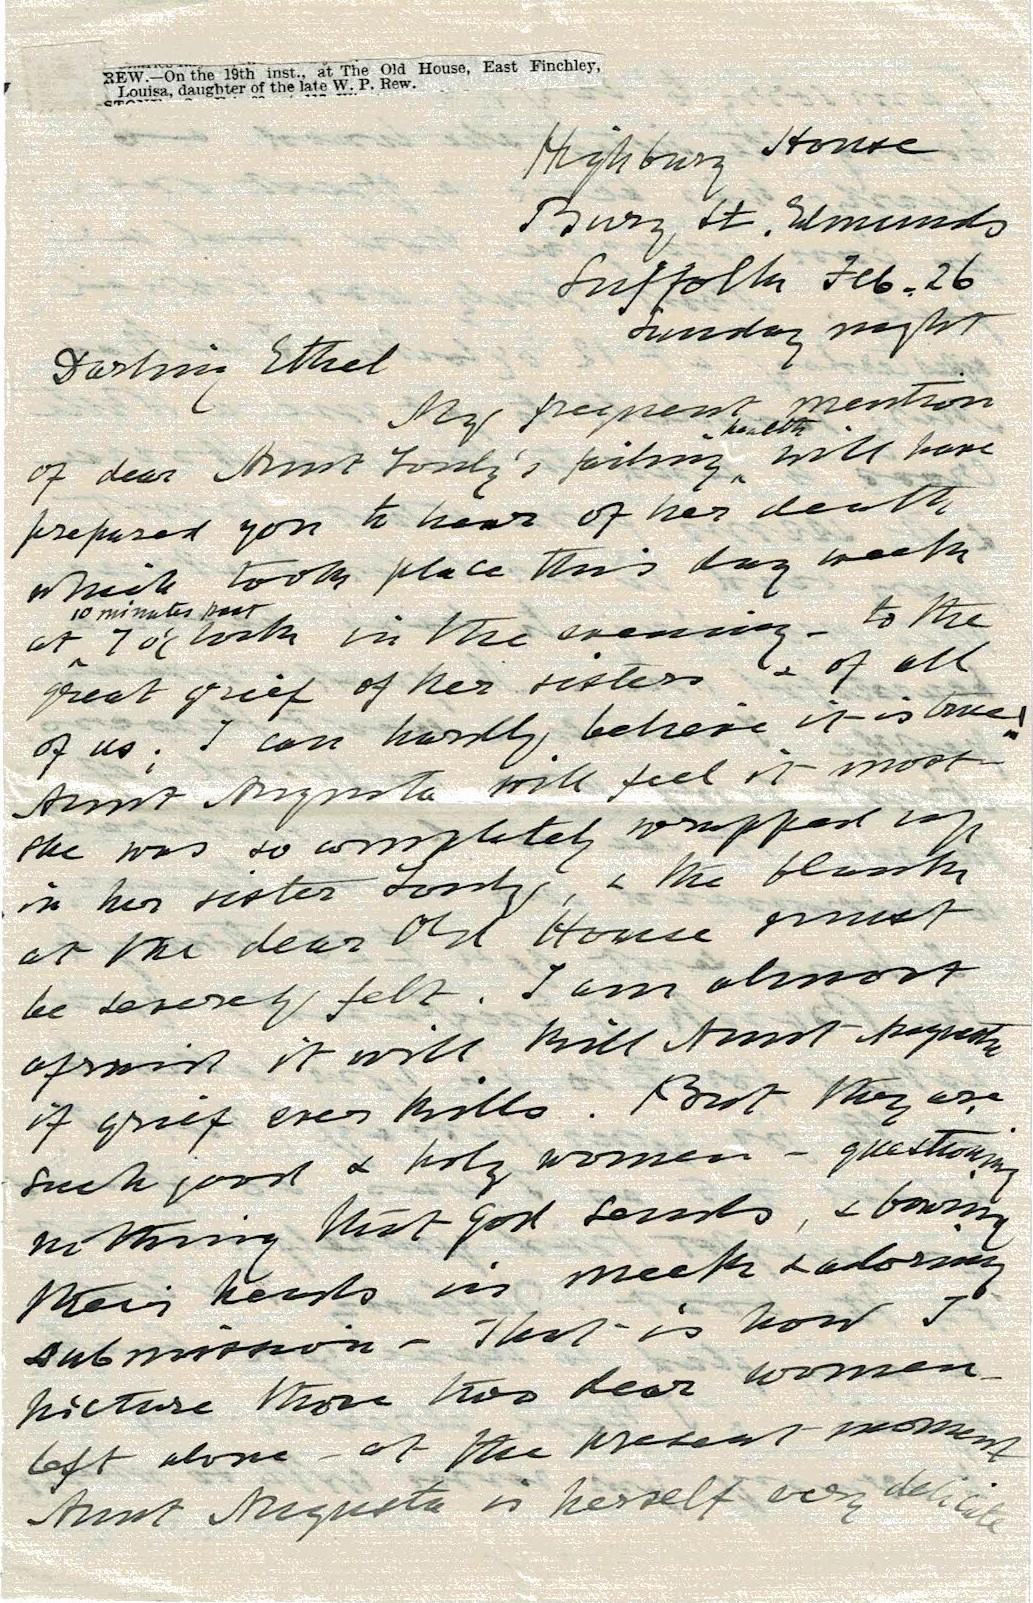 REW.—On the 19th inst., at The Old House, East Finchley,
Louisa, daughter of the late W. P. Rew.
Highbury House
Bury St. Edmunds
Suffolk Feb. 26
Sunday night
Darling Ethel
My frequent mention
of dear Aunt Louly's failing health will have
prepared you to hear of her death
which took place this day week
at 10 minutes past 7 o'clock in the evening - to the
great grief of her sisters & of all
of us; I can hardly believe it is true!
Aunt Augusta will feel it most -
she was so completely wrapped up
in her sister Louly, & the blank
at the dear Old House must
be severely felt. I am almost
afraid it will kill Aunt Augusta
if grief ever kills. But they are
such good & holy women - questioning
nothing that God sends, & bowing
their heads in meek & adoring
submission - That is how I
picture those two dear women -
left alone - at the present moment
Aunt Augusta is herself very delicate